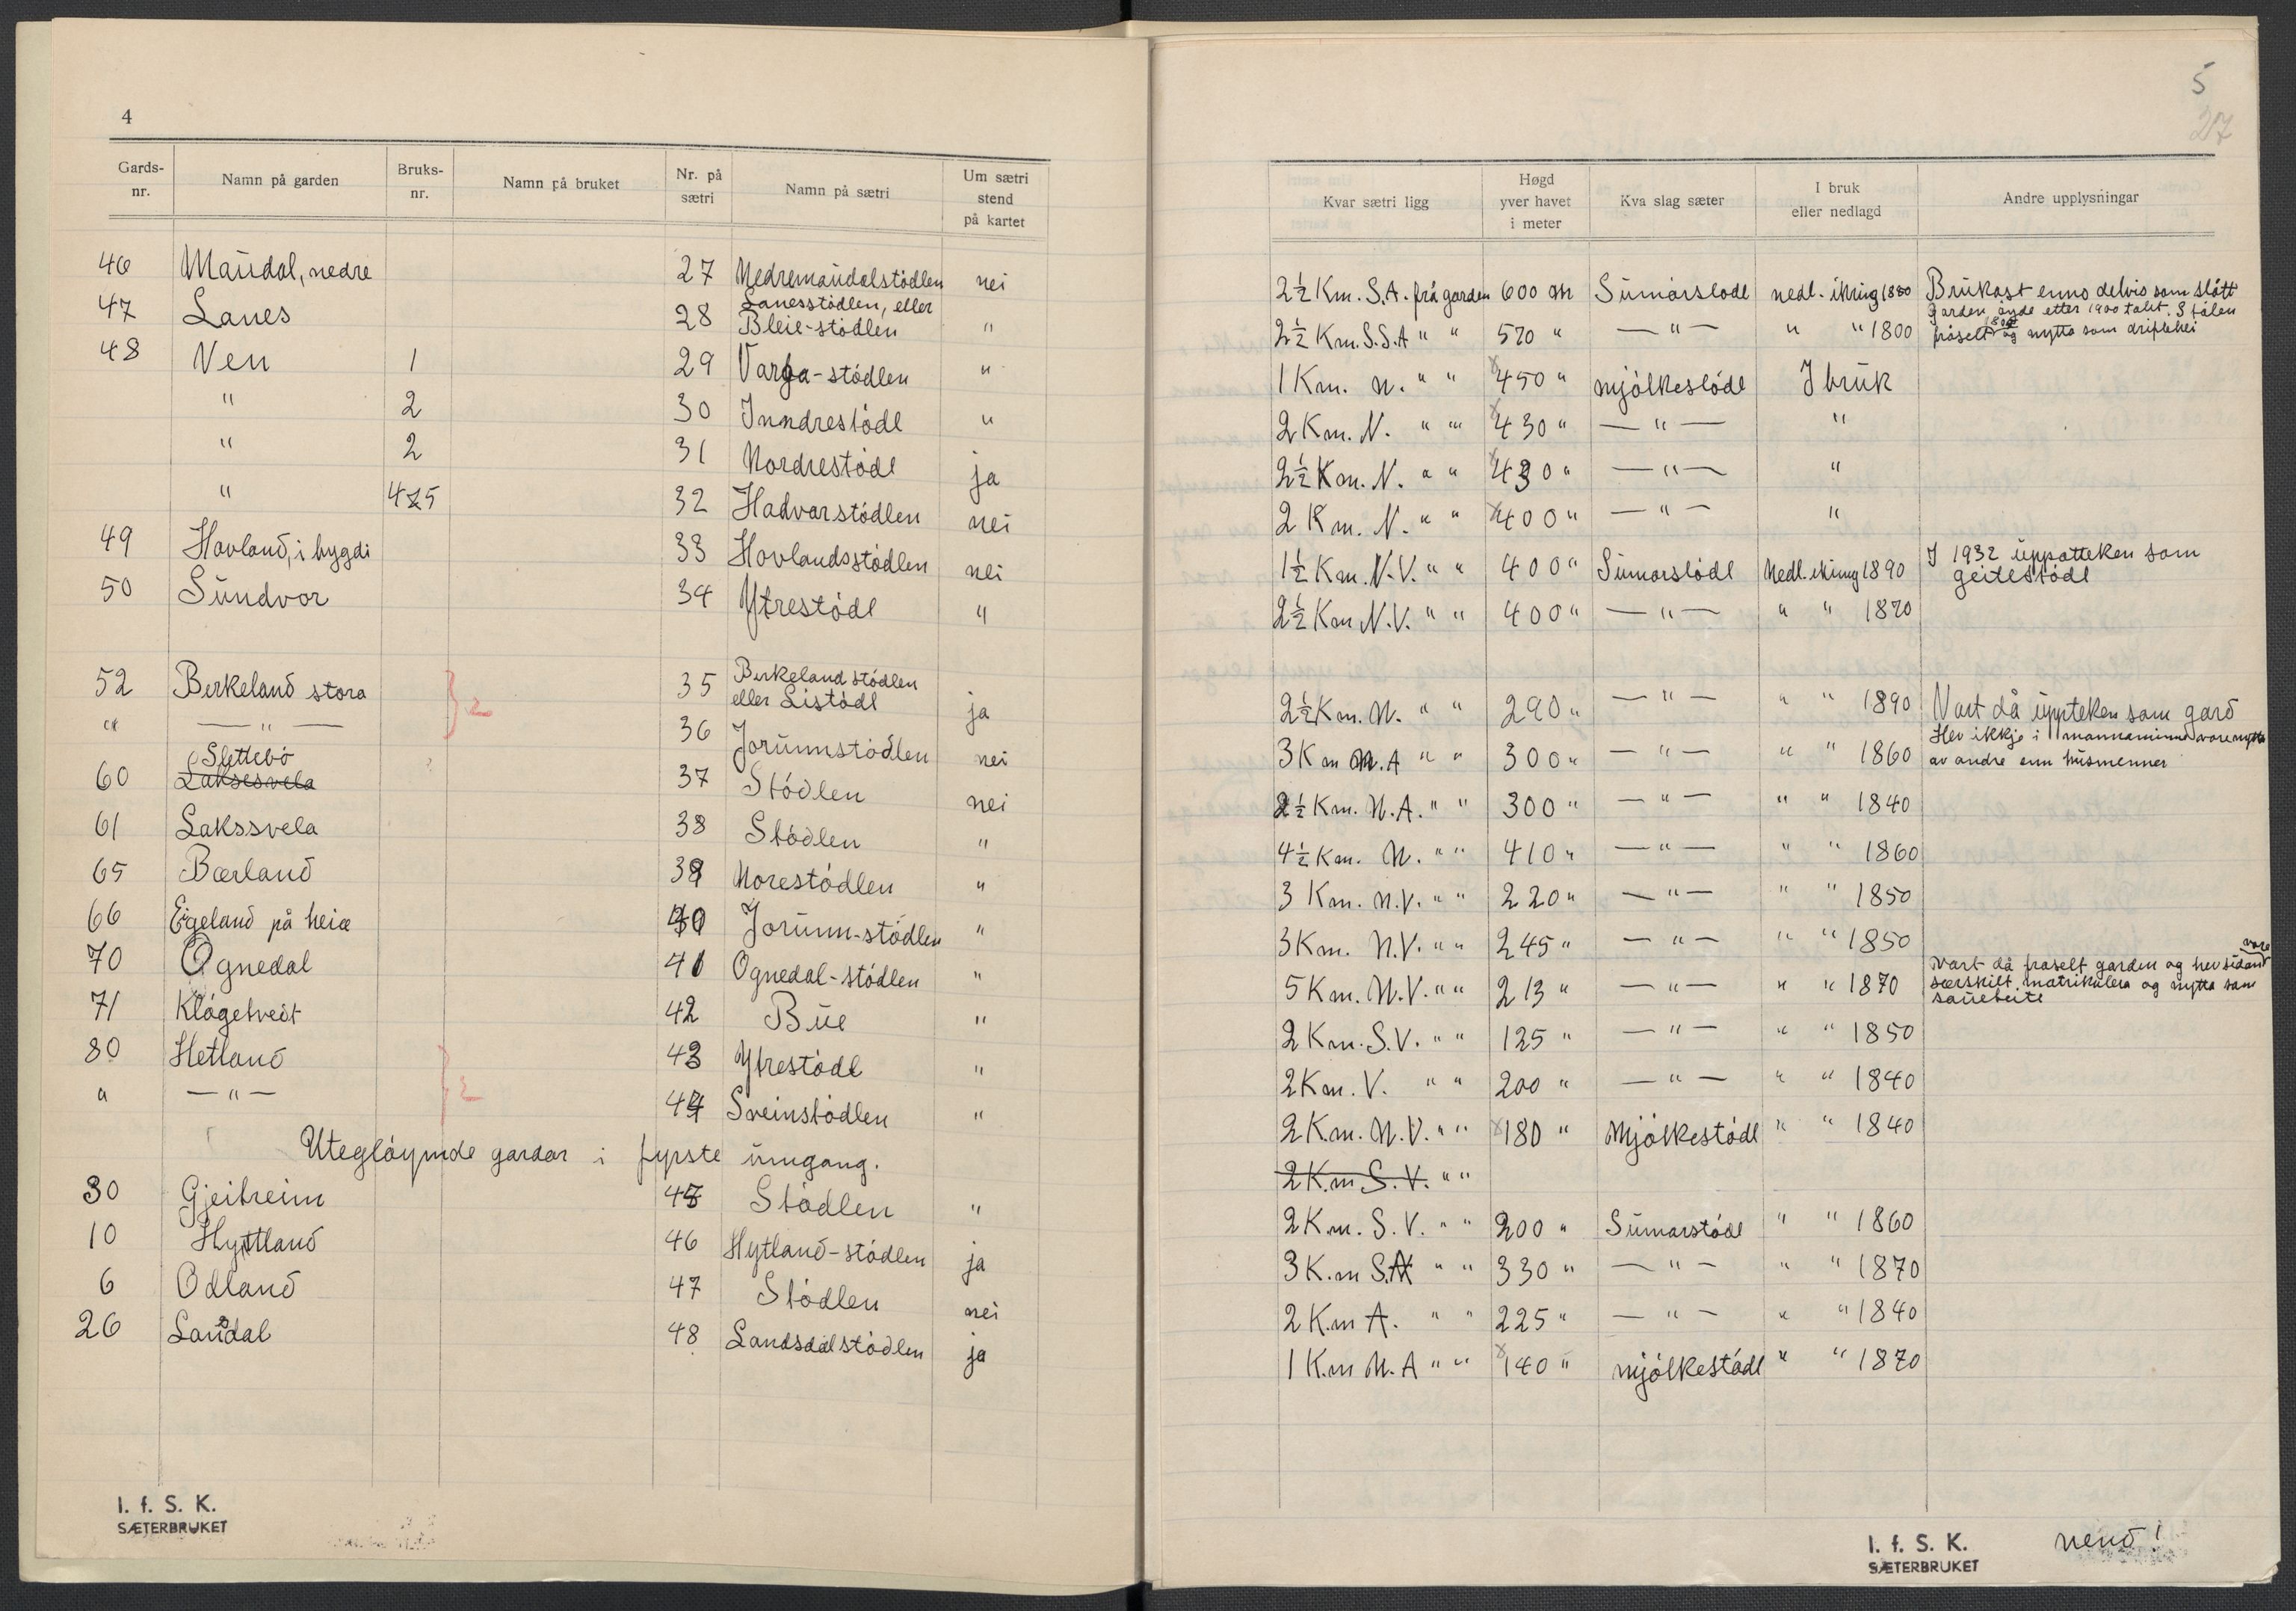 4
Gards-nr. Namn på garden Bruks-nr. Namn på bruket Nr. på sætri Namn på sætri Um sætri stend på kartet
46 Maudal, nedre 27 Nedremaudalstödlen nei
47 Lanes 28 Lanesstödlen, eller Bleie-stödlen "
48 Ven 1 29 Varga-stödlen "
" 2 30 Inndrestödl "
" 2 31 Nordrestödl ja
" 475 32 Hadvarstödlen nei
49 Hovland, i bygdi 33 Hovlandsstödlen nei
50 Sundvor 34 Ytrestödl "
52 Berkeland stora 2 35 Berkelandstödlen eller Listödl ja
" — " — 36 Jorunnstödlen nei
60 Slettebö Laksesvela 37 Stödlen nei
61 Lakssvela 38 Stödlen "
65 Bærland 39 Norestödlen "
66 Eigeland på heiæ 40 Jorunn-stödlen "
70 Ognedal 41 Ognedal-stödlen "
71 Klågetvedt 42 Bue "
80 Hetland 2 43 Ytrestödl "
" — " — 44 Sveinstödlen "
Utegløymde gardar i fyrste umgang.
30 Gjeitreim 45 Stödlen "
10 Hytland 46 Hytland-stödlen ja
6 Odland 47 Stödlen nei
26 Landsdal 48 Landsdalstödlen ja
I. f. S. K.
SÆTERBRUKET
5
27
Kvar sætri ligg Høgd yver havet i meter Kva slag sæter I bruk eller nedlagd Andre upplysningar
2½ Km. S.A. frå garden 600 m Sumarstödl nedl. ikring 1880 Brukast enno delvis som slått
2½ Km. S.S.A " " 570 " — " — " " 1800 Garden øyde etter 1900 talet. Stölen fråselt 1800 og nytta som driftehei
1 Km. N. " " 450 " mjölkestödl I bruk
2 Km. N. " " 430 " — " — "
2½ Km. N. " " 430 " — " — "
2 Km. N. " " 400 " — " — "
1½ Km. N.V. " " 400 " Sumarstödl Nedl. ikring 1890 I 1932 uppatteken som geitestödl
2½ Km N.V. " " 400 " — " — " " 1870
2½ Km. N. " " 290 " — " — " " 1890 Vart då uppteken som gard
3 Km N.A " " 300 " — " — " " 1860 Hev ikkje i mannaminne vore nytta av andre enn husmenner
2½ Km. N.A. " " 300 " — " — " " 1840
4½ Km. N. " " 410 " — " — " " 1860
3 Km. N.V. " " 220 " — " — " " 1850
3 Km. N.V. " " 245 " — " — " " 1850
5 Km. N.V. " " 213 " — " — " " 1870 Vart då fraselt garden og hev sidan vore særskilt matrikulera og nytta som sauebeite
2 Km. S.V. " " 125 " — " — " " 1850
2 Km. V. " " 200 " — " — " " 1840
2 Km. N.V. " " 180 " Mjölkestödl " " 1840
2 K.m S.V. " "
2 K.m. S.V. " " 200 " Sumarstödl " " 1860
3 K.m S.A " " 330 " — " — " " 1870
2 K.m A. " " 225 " — " — " " 1840
1 K.m N.A " " 140 " mjölkestödl " " 1870
I. f. S. K.
SÆTERBRUKET
vend!